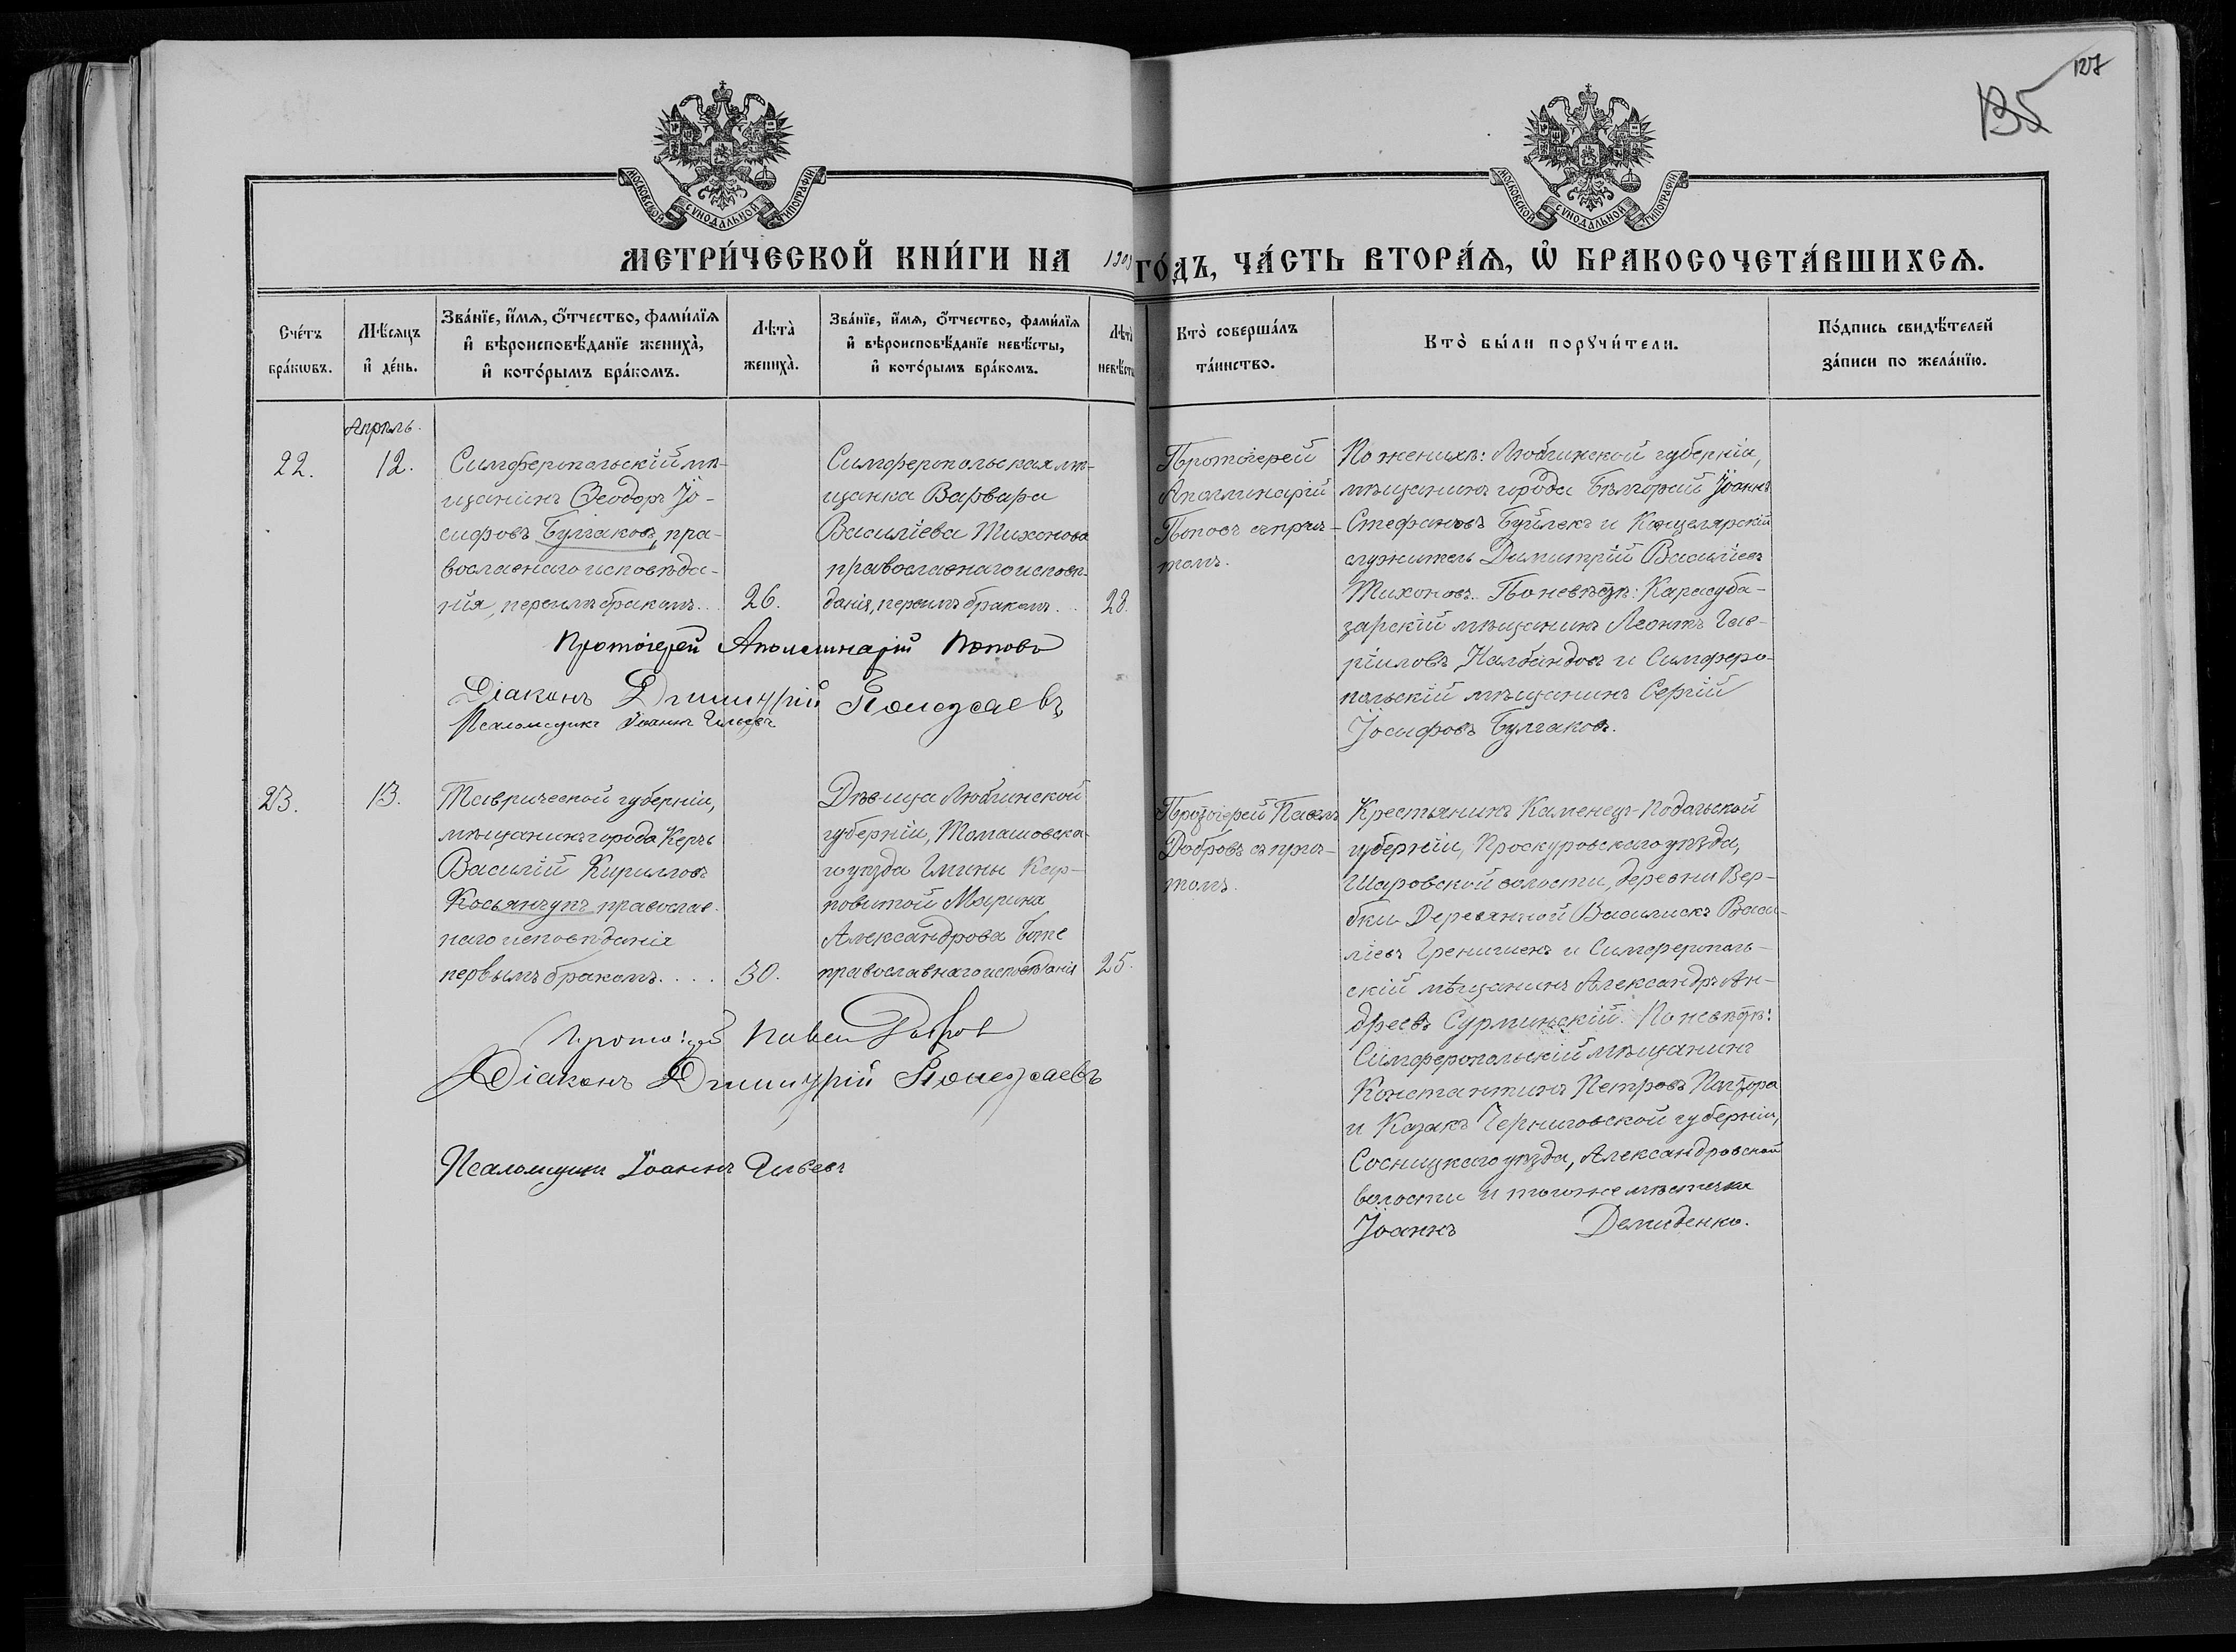 127
135
МОСКОВСКОЙ СУНОДАЛЬНОЙ ТИПОГРАФІИ
МОСКОВСКОЙ СУНОДАЛЬНОЙ ТИПОГРАФІИ
МЕТРИ́ЧЕСКОЙ КНИ́ГИ НА 190 ГО́ДЪ, ЧА́СТЬ ВТОРА́Ѧ, Ѡ҆ БРАКОСОЧЕТА́ВШИХСѦ.
Сче́тъ бра́кѡвъ.
Мѣ́сяцъ и҆ де́нь.
Зва́нїе, и҆́мѧ, ѻ҆́тчество, фами́лїѧ и҆ вѣроисповѣ́данїе жениха̀, и҆ кото́рымъ бра́комъ.
Лѣта̀ жениха̀.
Зва́нїе, и҆́мѧ, ѻ҆́тчество, фами́лїѧ и҆ вѣроисповѣ́данїе невѣ́сты, и҆ кото́рымъ бра́комъ.
Лѣта̀ невѣ́сты
Кто̀ соверша́лъ та́инство.
Кто̀ бы́ли порꙋчи́тели.
По́дпись свидѣ́телей за́писи по жела́нїю.
Апрѣль.
22.
12.
Симферопольскій мѣ-
щанинъ Ѳеодоръ Іо-
сифовъ Булгаковъ, пра-
вославнаго исповѣда-
нія, первымъ бракомъ..
26.
Симферопольская мѣ-
щанка Варвара
Васильева Тихонова
православнаго исповѣ-
данія, первымъ бракомъ..
28.
Протоіерей
Аполлинарій
Поповъ съ прич-
томъ.
По женихѣ: Люблинской губерніи,
мѣщанинъ города Бѣлгорай Іоаннъ
Стефановъ Буйлекъ и Канцелярскій
служитель Димитрій Васильевъ
Тихоновъ. По невѣстѣ: Карасуба-
зарскій мѣщанинъ Леонтъ Гав-
ріиловъ Налбандовъ и Симферо-
польскій мѣщанинъ Сергій
Іосифовъ Булгаковъ.
Протоіерей Аполлинарій Поповъ
Діаконъ Димитрій
Псаломщикъ Іоаннъ
23.
13.
Таврической губерніи,
мѣщанинъ города Керчь
Василій Кирилловъ
Косьянчупъ православ-
наго исповѣданія
первымъ бракомъ....
30.
Дѣвица Люблинской
губерніи, Томашовска-
го уѣзда Гмины Кар-
повитой Марина
Александрова
православнаго исповѣданія
25.
Протоіерей Павелъ
Добровъ съ прич-
томъ.
Крестьянинъ Каменец-Подольской
губерніи, Проскуровскаго уѣзда,
Шаровской волости, деревни Вер-
бки Деревянной Василискъ Васи-
ліевъ и Симферополь-
скій мѣщанинъ Александръ Ан-
дреевъ Сурминскій. По невѣстѣ:
Симферопольскій мѣщанинъ
Константинъ Петровъ Полтора
и Козакъ Черниговской губерніи,
Сосницкаго уѣзда, Александровской
волости и того же мѣстечка
Іоаннъ Демиденко.
Протоіерей Павелъ Добровъ
Діаконъ Димитрій
Псаломщикъ Іоаннъ